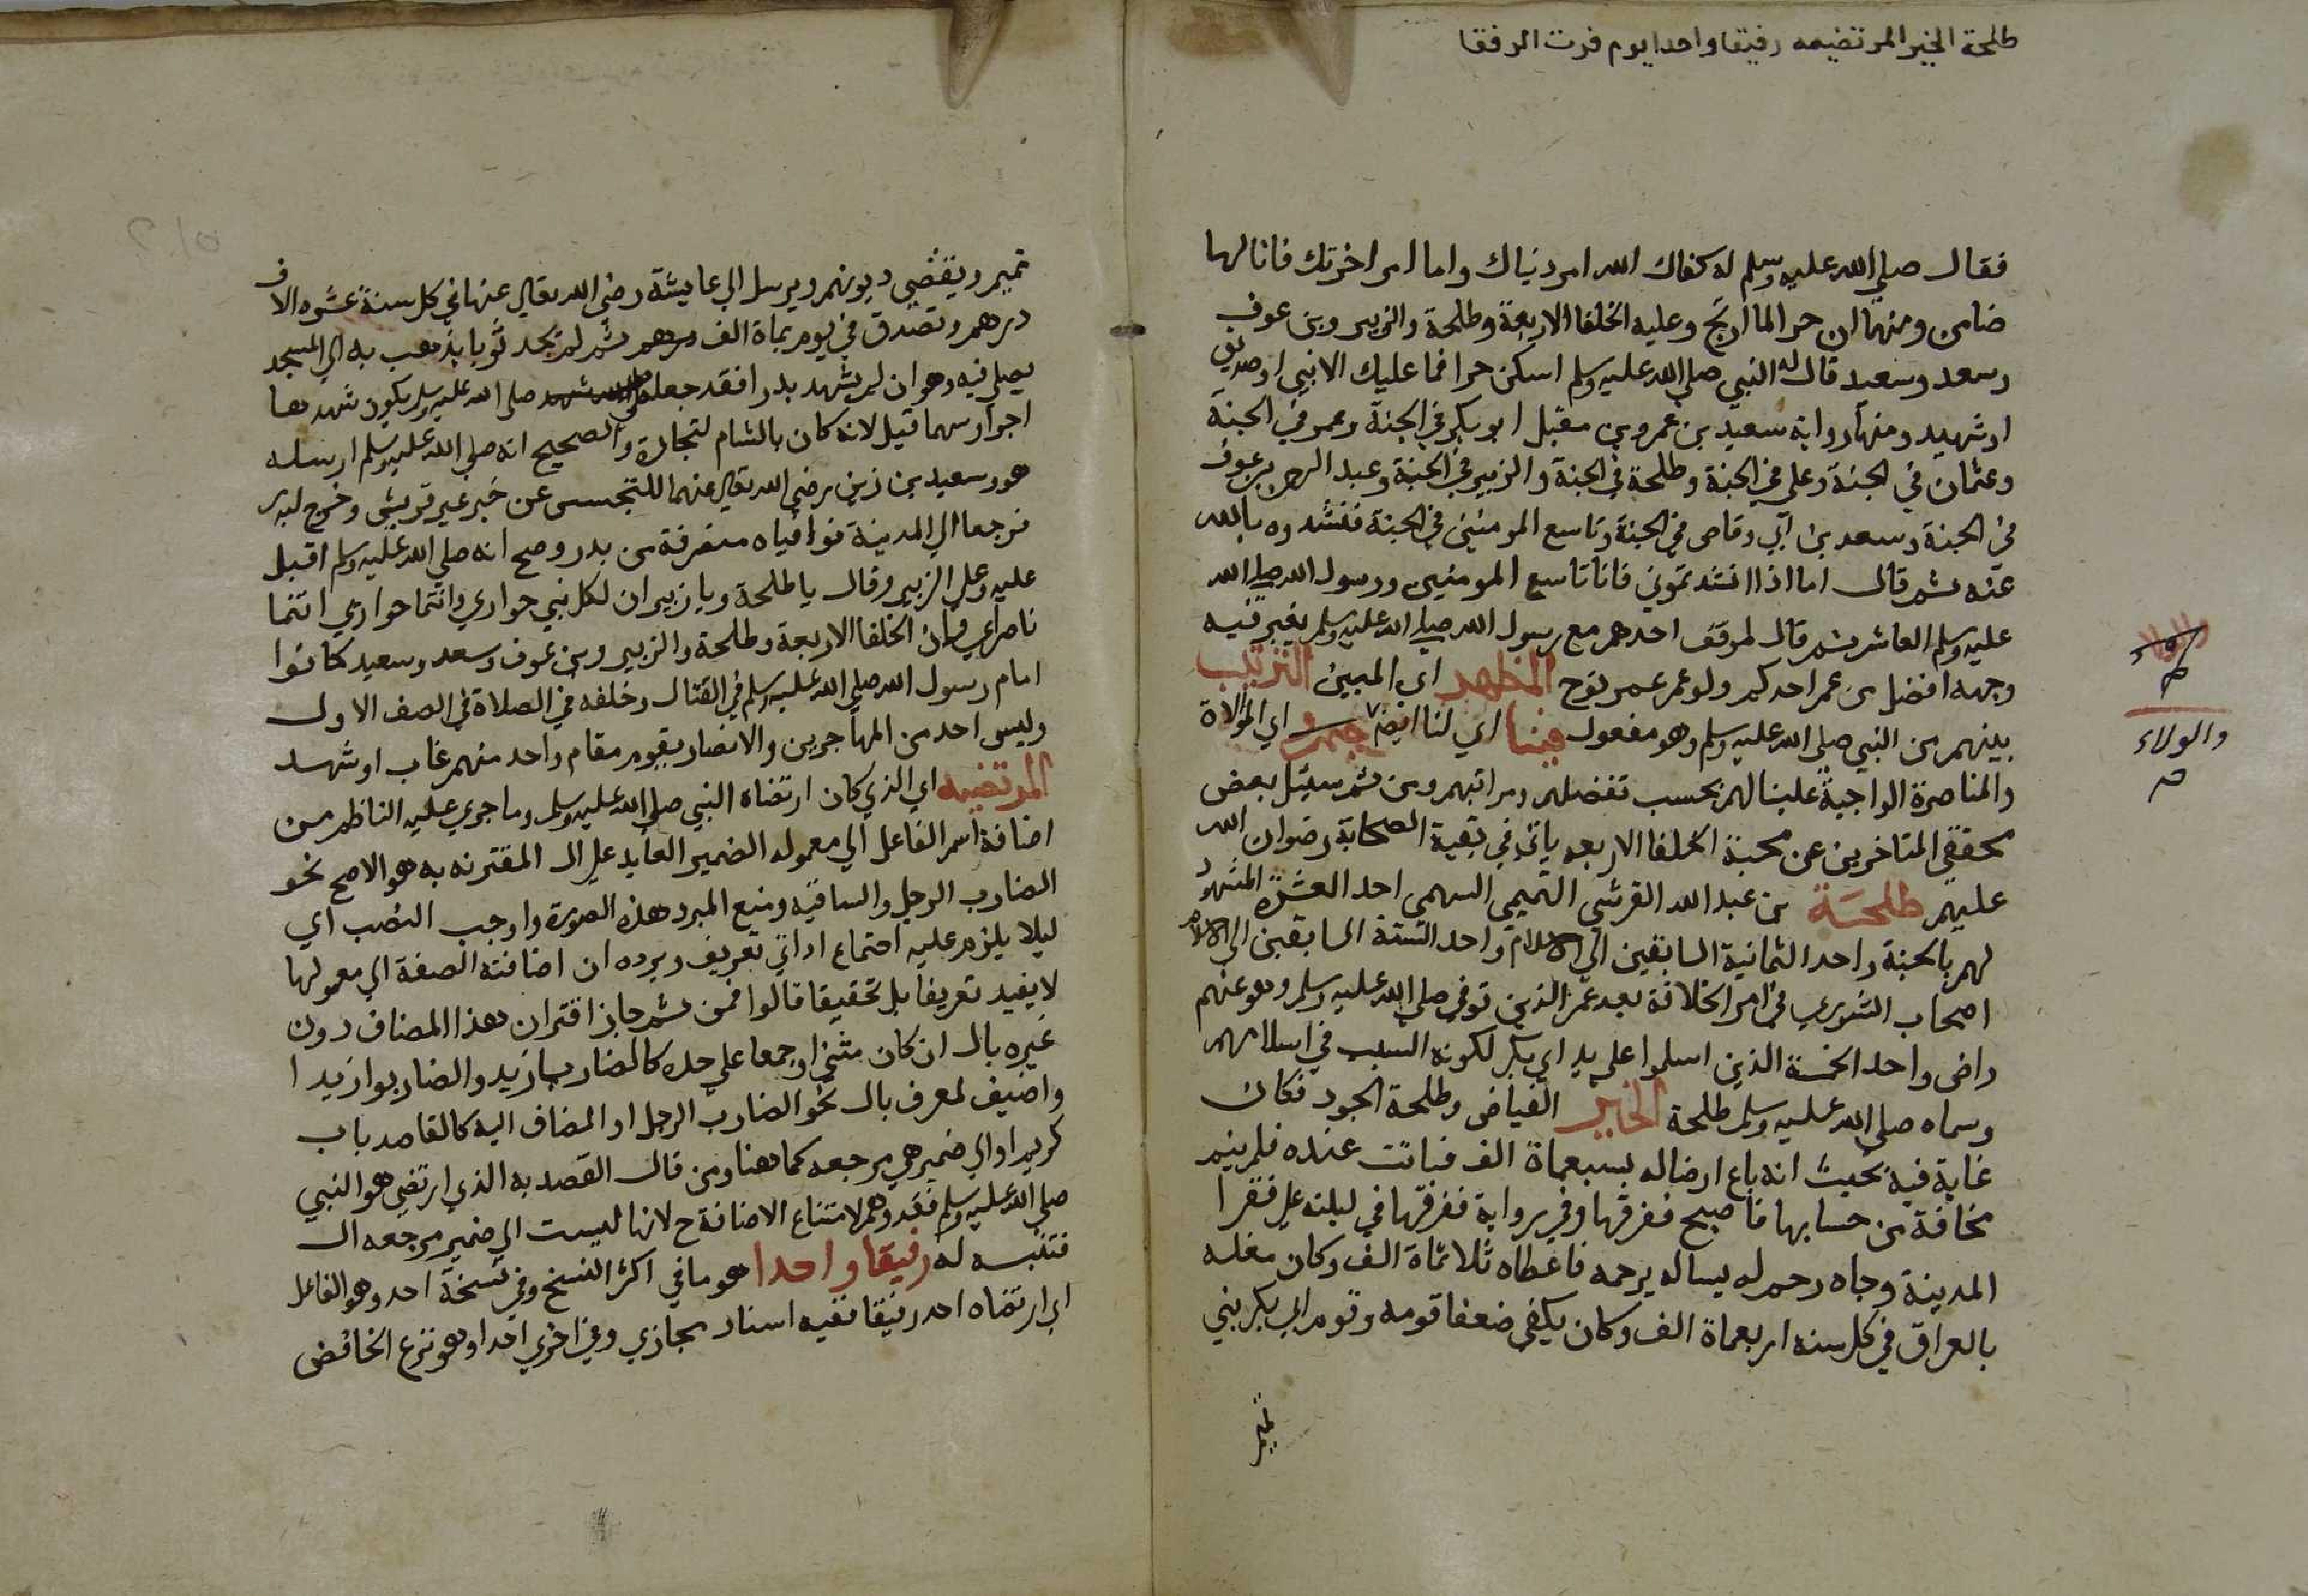 طلحة الخير المرتضيه رفيقا واحدا يوم فرت الرفقا
فقال صلى الله عليه وسلم له كفاك الله امر دنياك واما امر اخرتك فانا لها
ضامن ومنها ان حرا لما ارتج وعليه الخلفا الاربعة وطلحة والزبير وبن عوف
وسعد وسعيد قال له النبي صلى الله عليه وسلم اسكن حرا فما عليك الا نبي او صديق
او شهيد ومنها رواية سعيد بن عمرو بن مقبل ابو بكر في الجنة وعمر في الجنة
وعثمان في الجنة وعلي في الجنة وطلحة في الجنة والزبير في الجنة وعبد الرحمن بن عوف
في الجنة وسعد بن ابي وقاص في الجنة وتاسع المومنين في الجنة فنشدوه بالله
عنه ثم قال اما اذا انشدتموني فانا تاسع المومنين ورسول الله صلى الله
عليه وسلم العاشر ثم قال لموقف احدهم مع رسول الله صلى الله عليه وسلم يغبر فيه
وجهه افضل من عمر احدكم ولو عمر عمر نوح المظهر اي المبين الترتيب
بينهم من النبي صلى الله عليه وسلم وهو مفعول فينا اي لنا ايضا اي الموالاة
والولاء
والمناصرة الواجبة علينا لهم بحسب تفضلهم ومراتبهم ومن ثم سيتل بعض
محققي المتاخرين عن محبة الخلفا الاربعه ياتي في بقية الصحابة رضوان الله
عليهم طلحة بن عبد الله القرشي التميمي السهمي احد العشرة المشهود
لهم بالجنة واحد الثمانية السابقين الى الاسلام واحد الستة السابقين الى الاسلام
اصحاب الشورى في امر الخلافة بعد عمر الذين توفي صلى الله عليه وسلم وهو عنهم
راض واحد الخمسة الذين اسلموا على يد ابي بكر لكونه السبب في اسلامهم
وسماه صلى الله عليه وسلم طلحة الخير الفياض وطلحة الجود فكان
غاية فيه بحيث انه باع ارضا له بسبعماة الف فباتت عنده فلم ينم
مخافة من حسابها فاصبح ففرقها وفي رواية ففرقها في ليلته على فقرا
المدينة وجاه رحم له يساله برحمه فاعطاه ثلاثماة الف وكان مغله
بالعراق في كل سنه اربعماة الف وكان يكفي ضعفا قومه وقوم ابي بكر بني
تميم
تميم ويقضي ديونهم ويرسل الى عايشة رضي الله تعالى عنها في كل سنة عشرة الاف
درهم وتصدق في يوم بماة الف درهم ثم لم يجد ثوبا يذهب به الى المسجد
يصلي فيه وهو ان لم يشهد بدرا فقد جعله صلى الله عليه وسلم يكون شهدها
اجرا وسهما قيل لانه كان بالشام لتجارة والصحيح انه صلى الله عليه وسلم ارسله
هو وسعيد بن زيد رضي الله تعالى عنهما للتجسس عن خبر عير قريش وخرج لبدر
فرجعا الى المدينة فوافياه منصرفة من بدر وصح انه صلى الله عليه وسلم اقبل
عليه وعلى الزبير وقال يا طلحة ويا زبير ان لكل نبي حواري وانتما حواري انتما
ناصراي وان الخلفا الاربعة وطلحة والزبير وبن عوف وسعد وسعيد كانوا
امام رسول الله صلى الله عليه وسلم في القتال وخلفه في الصلاة في الصف الاول
وليس احد من المهاجرين والانصار يقوم مقام واحد منهم غاب او شهد
المرتضيه اي الذي كان ارتضاه النبي صلى الله عليه وسلم وما جرى عليه الناظم من
اضافة اسم الفاعل الى معموله الضمير العايد على ال المقترنه به هو الاصح نحو
الضارب الرجل والساقيه ومنع المبرد هذه الصورة واوجب النصب اي
ليلا يلزم عليه اجتماع اداتي تعريف ويرده ان اضافته الصفة الى معمولها
لا يفيد تعريفا بل تخفيفا قالوا فمن ثم جاز اقتران هذا المضاف دون
غيره بال ان كان مثنى او جمعا على حده كالضاربا زيد والضاربوا زيدا
واضيف لمعرف بال نحو الضارب الرجل او المضاف اليه كالقاصد باب
كريم او الى ضمير هي مرجعه كما هنا ومن قال القصد به الذي ارتضى هو النبي
صلى الله عليه وسلم فقد وهم لامتناع الاضافة ح لانها ليست الى ضمير مرجعه ال
فتنبه له رفيقا واحدا هو ما في اكثر النسخ وفي نسخة احد وهو الفاعل
اي ارتضاه احد رفيقا ففيه اسناد مجازي وفي اخرى احدا وهو نزع الخافض